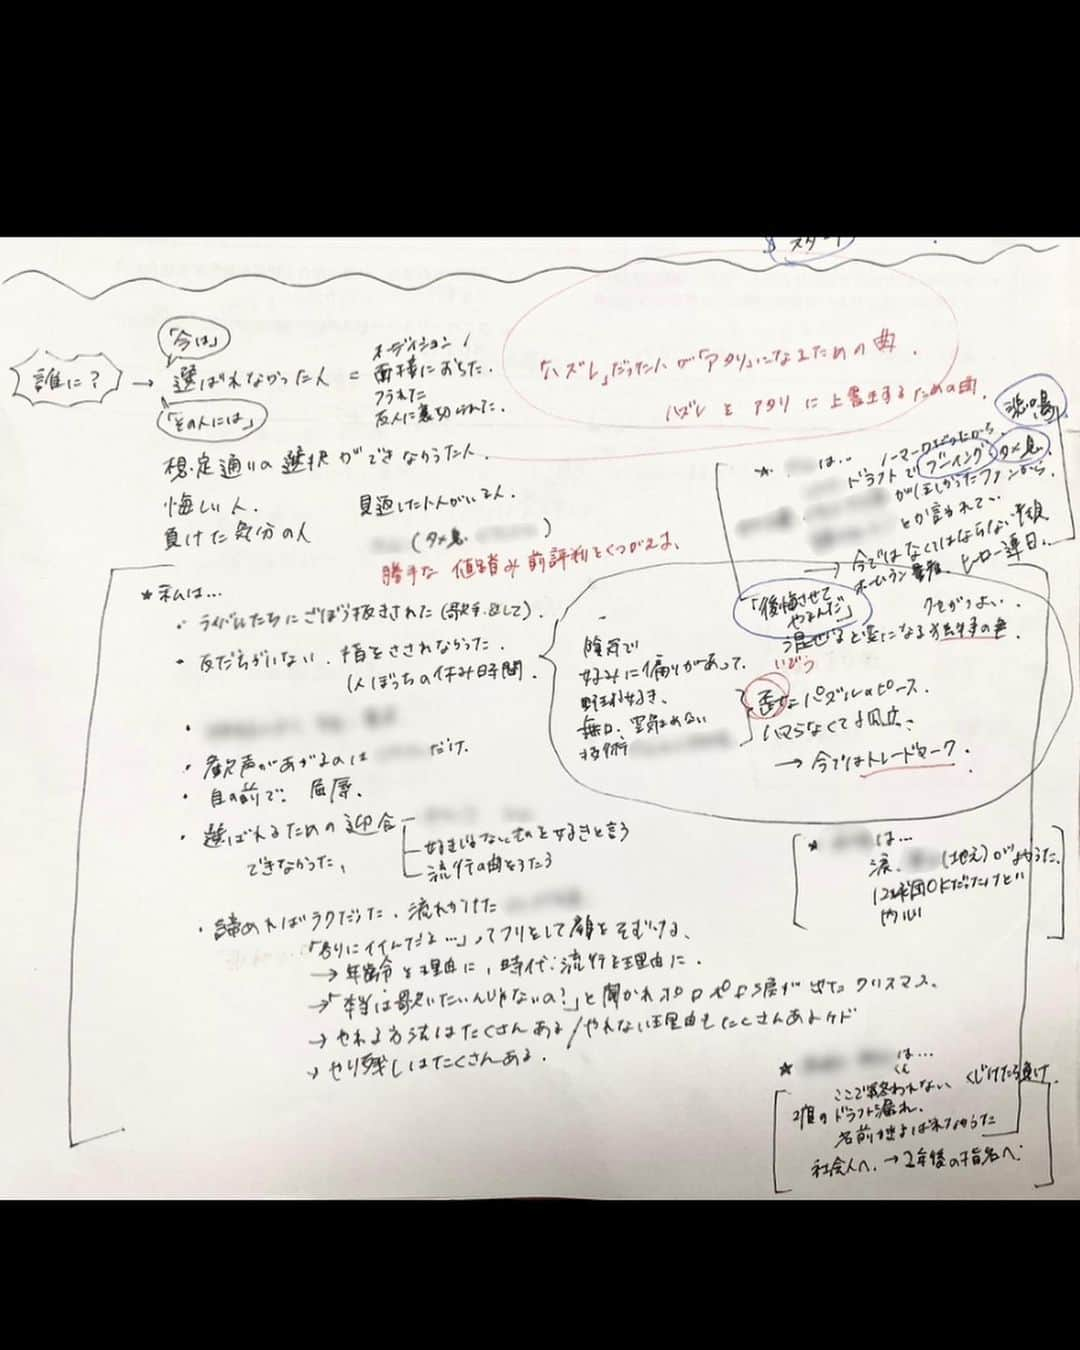 スタート
「今は」
誰に？ → 選ばれなかった人 =
オーディション/
面接におちた。
フラれた
友人に裏切られた。
「その人には」
「ハズレ」だった人が「アタリ」になるための曲.
ハズレ を アタリ に 上書きするための曲.
想定通りの選択ができなかった人.
悔しい人.
見返したい人がいる人.
負けた気分の人
(タメ息
勝手な 値踏み 前評判をくつがえす.
悲鳴
★ は…
ノーマークだったから.
ドラフトで ブーイング タメ息.
がほしかったファンから
とか言われて、
→ 今ではなくてはならない存在
ホームラン量産、ヒーロー連日.
「後悔させてやるんだ」
★ 私は…
・ライバルたちにごぼう抜きされた(歌手として).
・友だちがいない. 指をさされなかった.
1人ぼっちの休み時間.
・歓声があがるのは だけ.
・目の前で. 屈辱.
・選ばれるための迎合
できなかった,
好きじゃないものを好きと言う
流行の曲をうたう
クセがつよい.
混ぜると変になる独特の声.
陰気で
好みに偏りがあって.
野球好き.
無口.
技術
いびつ
歪なパズルのピース.
ハマらなくても
→ 今ではトレードマーク.
★ は…
涙. (地元)がよかった.
12球団OKだったけど
内心
・諦めればラクだった. 流れかけた
「別にイイんだよ…」ってフリをして顔をそむける.
→ 年齢を理由に, 時代・流行を理由に.
→「本当は歌いたいんじゃないの?」と聞かれポロポロ涙が出たクリスマス.
→ やれる方法はたくさんある/やれない理由もたくさんあるケド
→ やり残しはたくさんある.
★ くんは…
ここで終われない くじけたら負け
2度のドラフト漏れ.
名前はよばれなかった
社会人へ. → 2年後の指名へ.